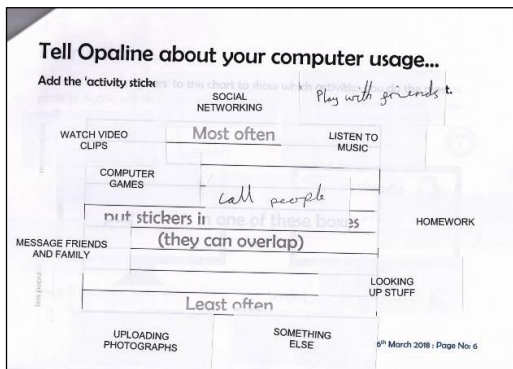 Tell Opaline about your computer usage...
Add the 'activity sticke
to this chart to show which activities you do the
t.
SOCIAL
NETWORKING
Play with friends
WATCH VIDEO
CLIPS
Most often
LISTEN TO
MUSIC
COMPUTER
GAMES
call people
put stickers in one of these boxes
HOMEWORK
MESSAGE FRIENDS
AND FAMILY
(they can overlap)
LOOKING
UP STUFF
Least often
UPLOADING
PHOTOGRAPHS
SOMETHING
ELSE
6th March 2018 : Page No: 6